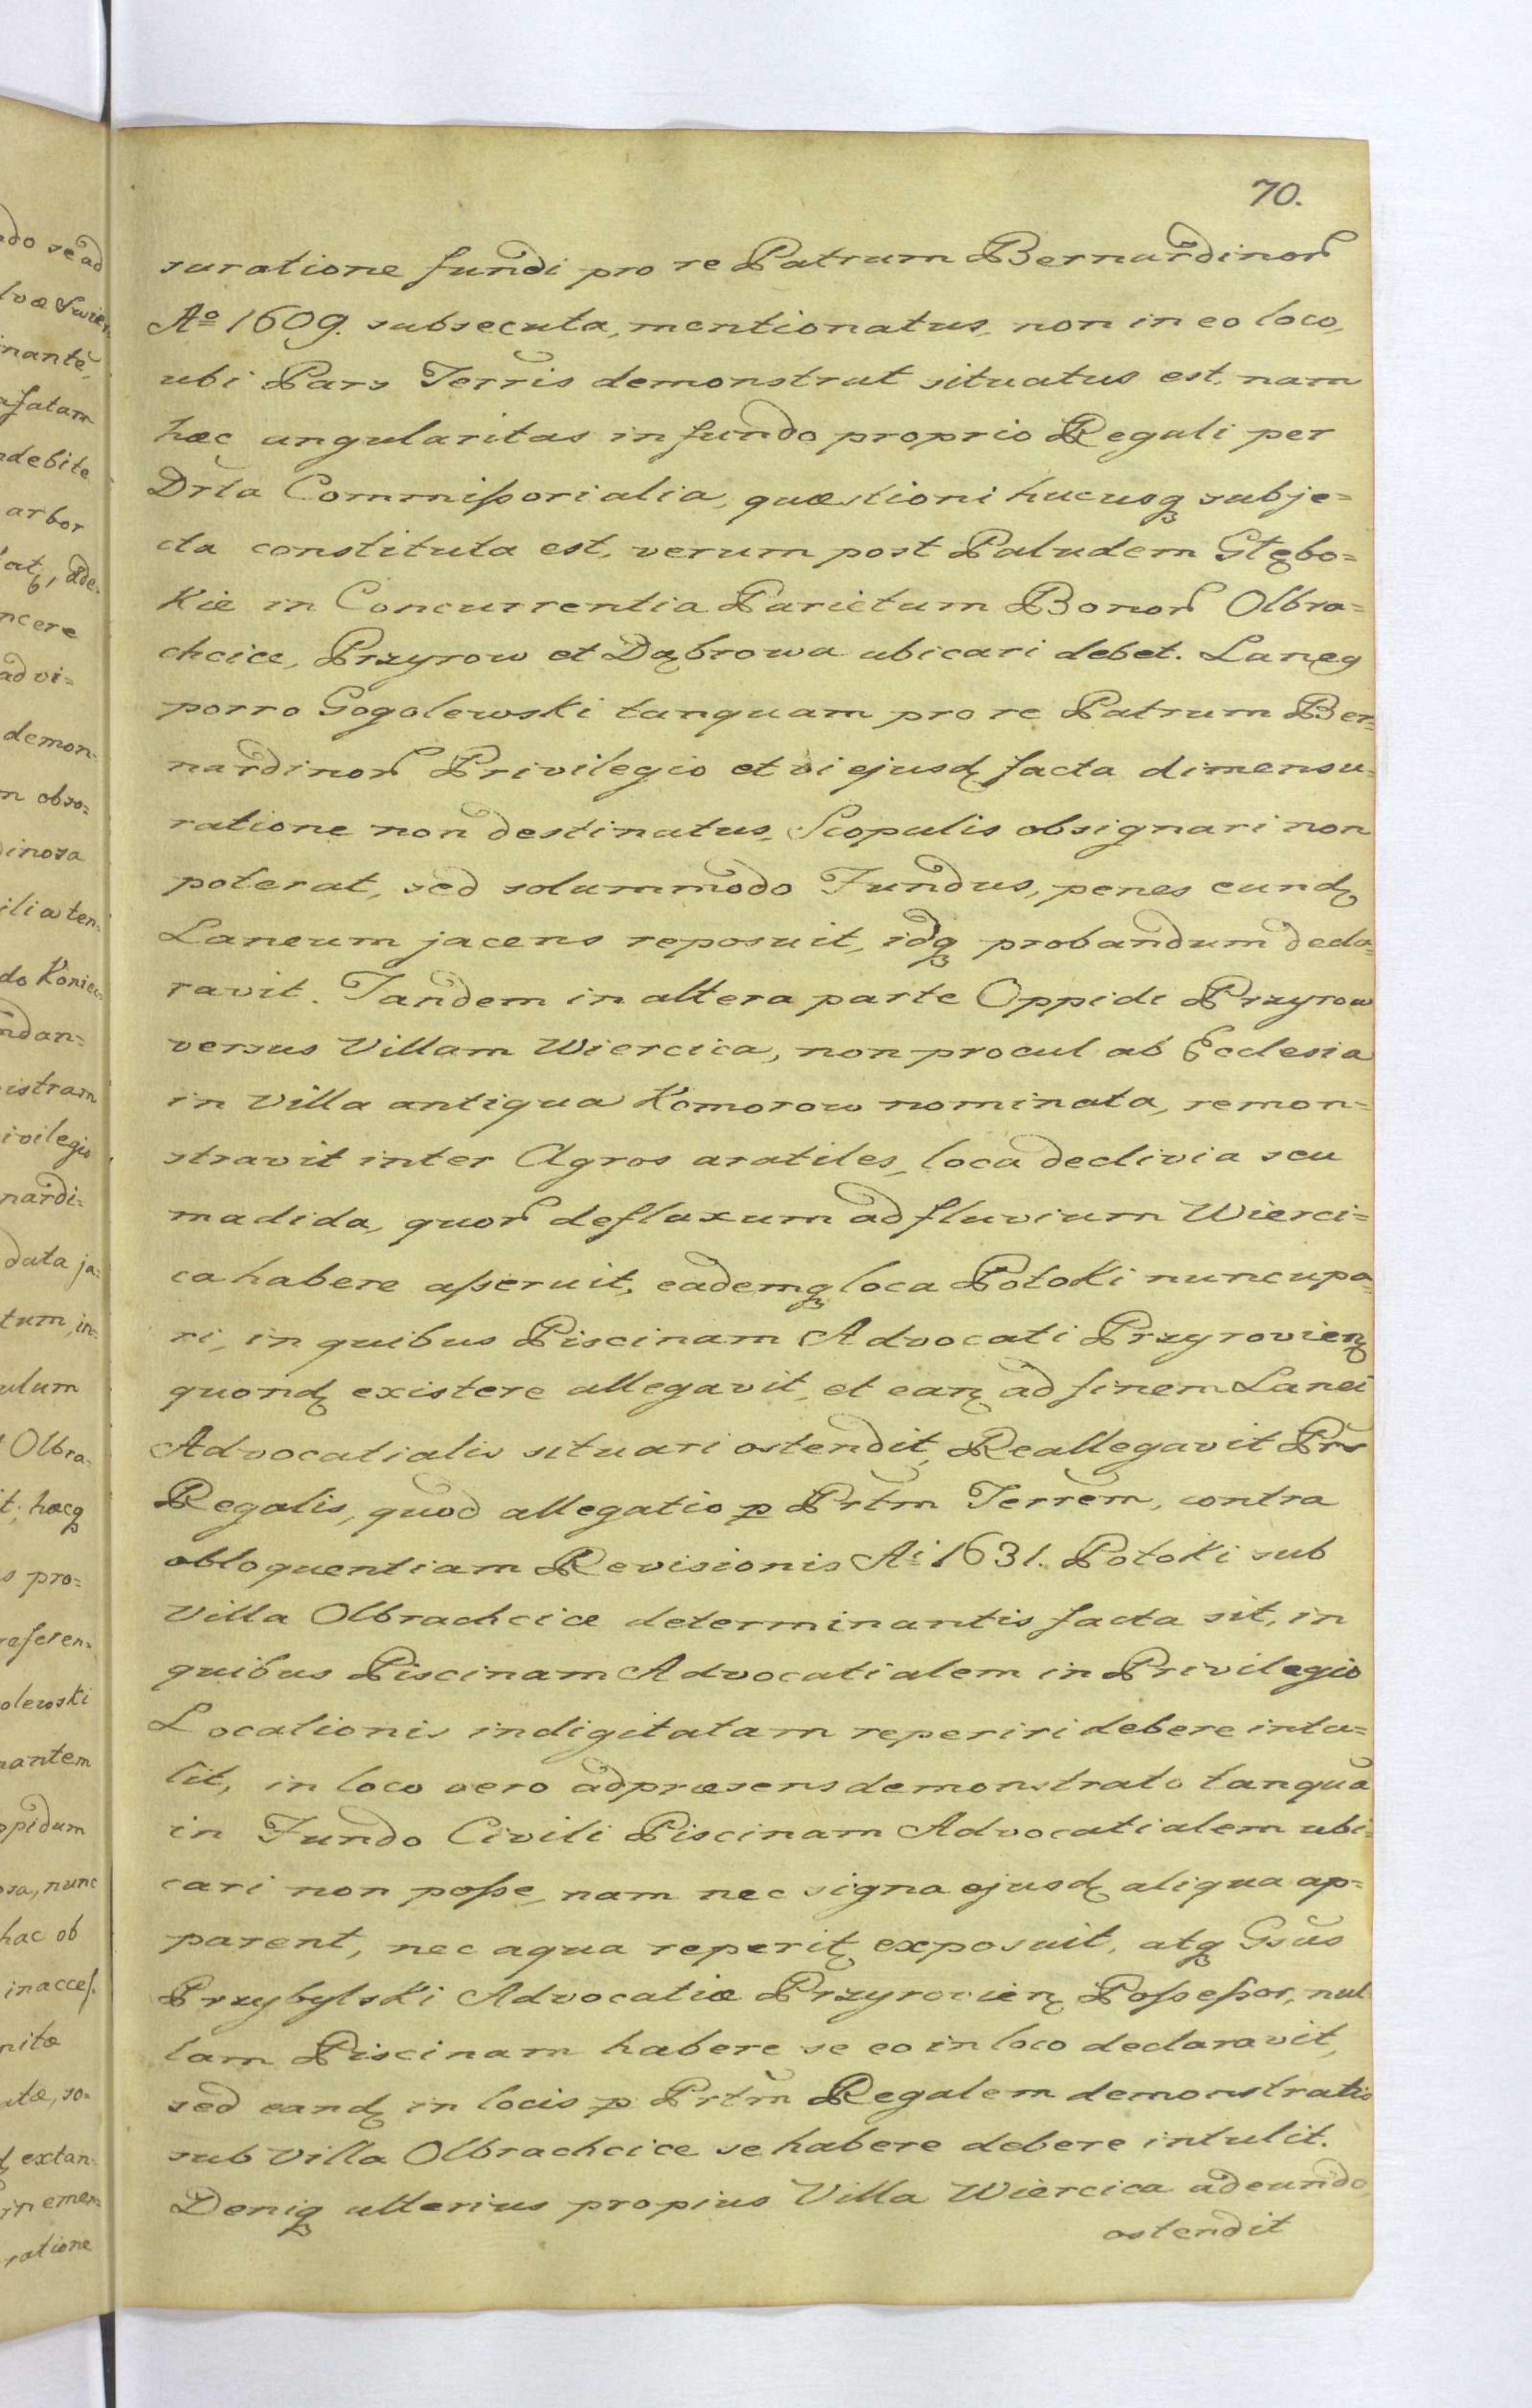 70.
suratione fundi pro re Patrum Bernardinor
Aº 1609. subsecuta, mentionatus, non in eo loco,
ubi Pars Terris demonstrat situatus est, nam
hæc angularitas in fundo proprio Regali per
Drta Commißorialia, quæstioni hucusq subje=
cta constituta est, verum post Paludem Głębo=
Kie in Concurrentia Parietum Bonor Olbra=
chcice, Przyrow et Dąbrowa ubicari debet. Laneg
porro Gogolewski tanquam pro re Patrum Ber=
nardinor Privilegio et vi ejusd facta dimensu=
ratione non destinatus, Scopulis obsignari non
poterat, sed solummodo Fundus, penes eund
Laneum jacens reposuit, idq probandum decla=
ravit. Tandem in altera parte Oppidi Przyrow
versus Villam Wiercica, non procul ab Ecclesia
in Villa antiqua Komorow nominata, remon=
stravit inter Agros aratiles, loca declivia seu
madida, quor defluxum ad fluvium Wierci=
ca habere aßeruit, eademq loca Potoki nuncupa=
ri, in quibus Piscinam Advocati Przyrovien
quond existere allegavit, et ean ad finem Lanei
Advocatialis situari ostendit, Reallegavit Prs
Regalis, quod allegatio p Prtm Terrem, contra
obloquentiam Revisionis Ai 1631. Potoki sub
Villa Olbrachcice determinantis facta sit, in
quibus Piscinam Advocatialem in Privilegio
Locationis indigitatam reperiri debere intu=
lit, in loco vero adpræsens demonstrato tanqua
in Fundo Civili Piscinam Advocatialem ubi=
cari non poße, nam nec signa ejusd aliqua ap=
parent, nec aqua reperit exposuit, atq Gsus
Przybylski Advocatiæ Przyrovien Poßeßor, nul
lam Piscinam habere se eo in loco declaravit,
sed eand in locis p Prtm Regalem demonstratis
sub Villa Olbrachcice se habere debere intulit.
Deniq ulterius propius Villa Wiercica adeundo,
ostendit